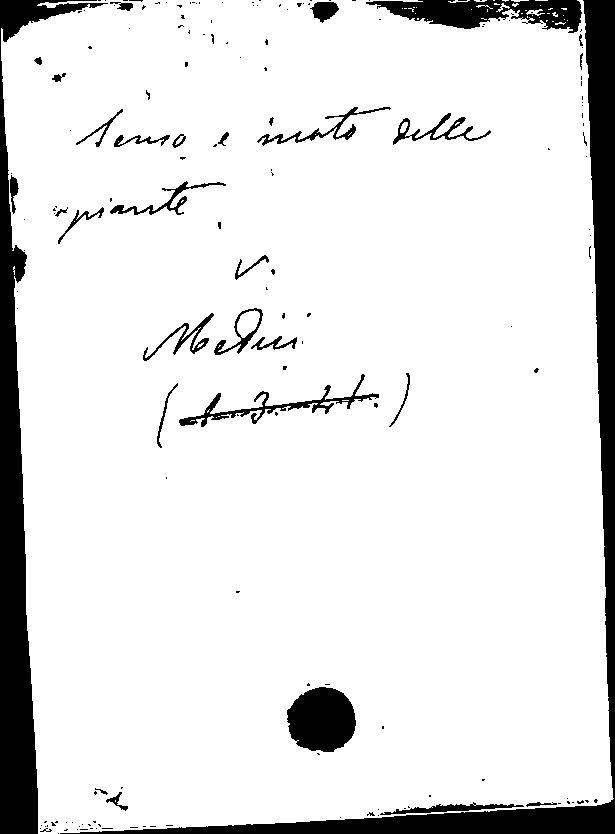 Senso e moto delle
piante
v.
Medici